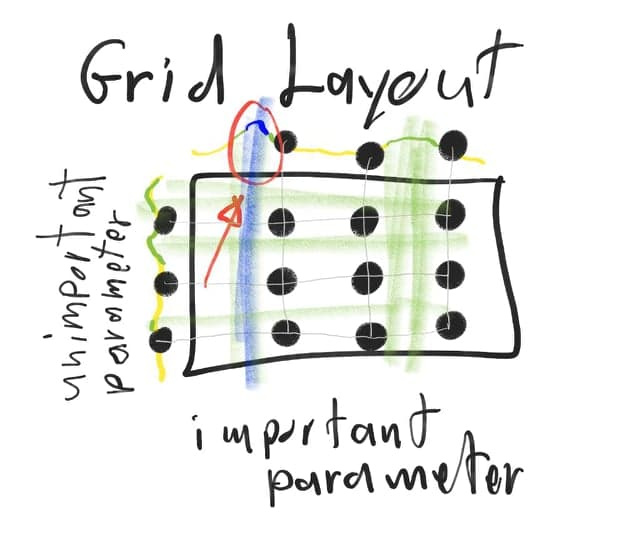 Grid Layout
unimportant
parameter
important
parameter